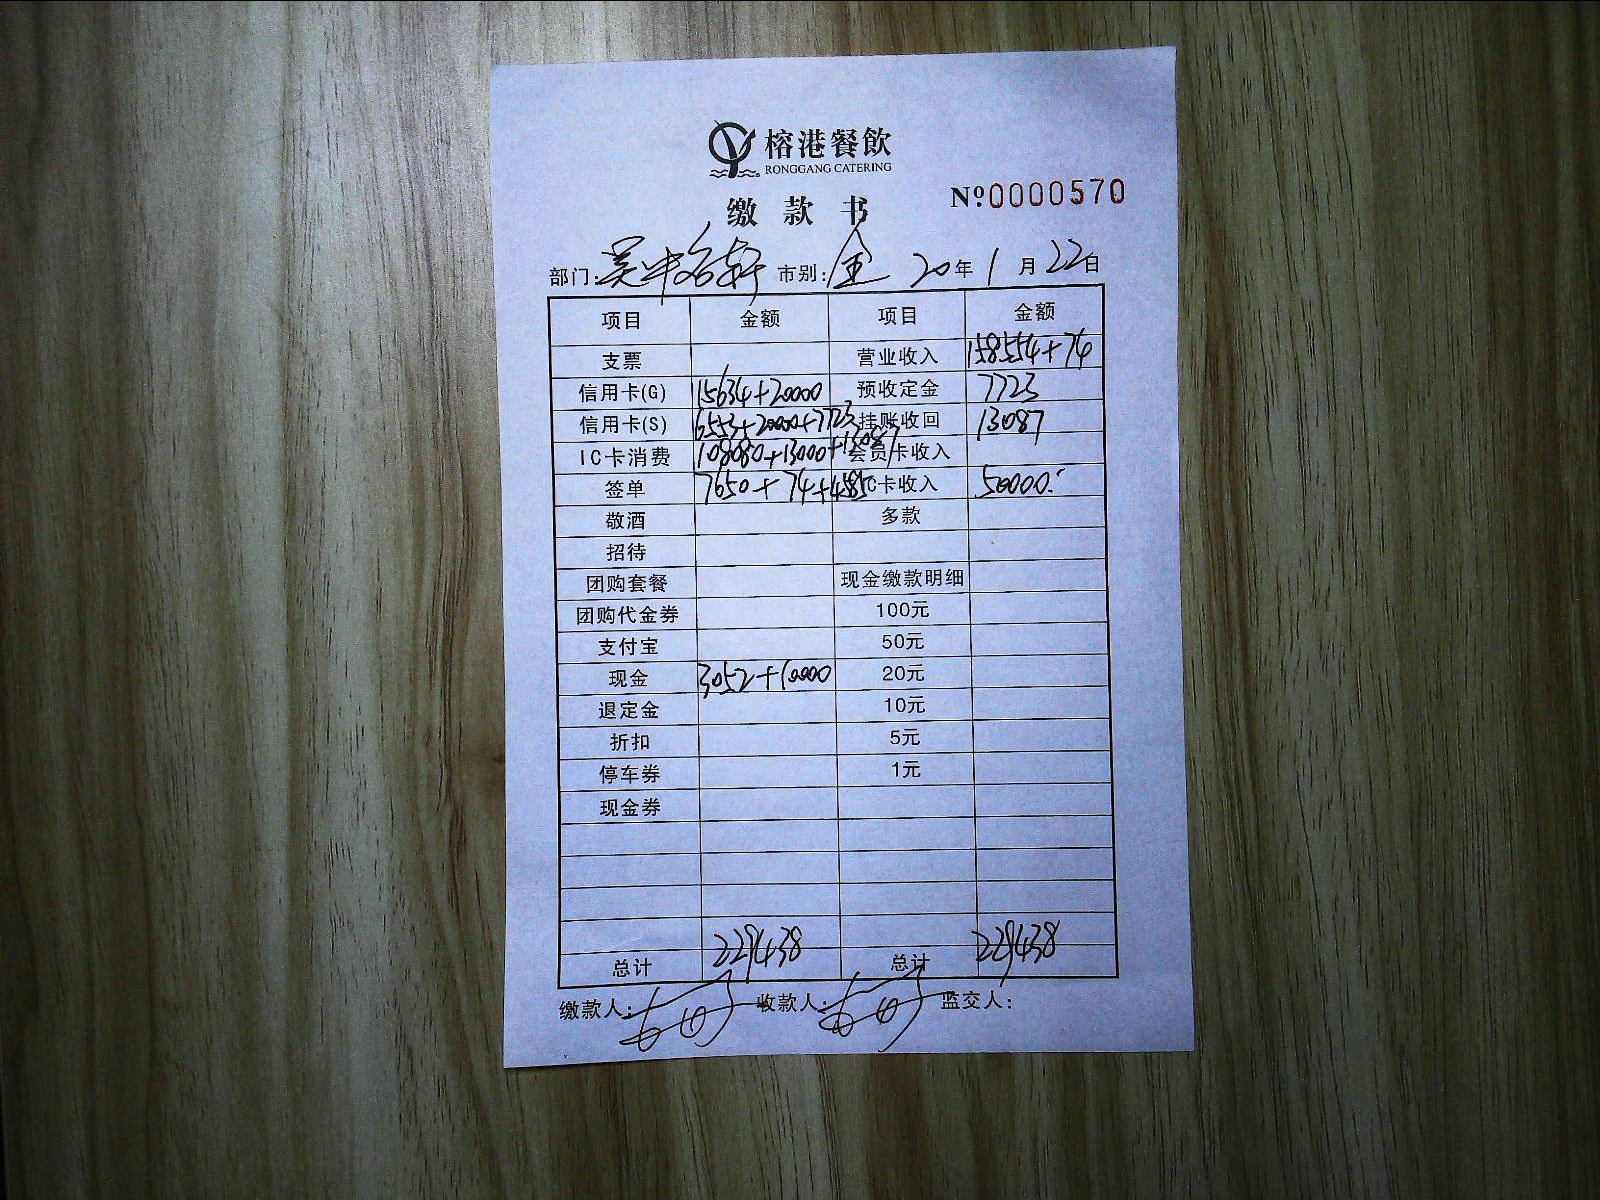 榕港餐飲
RONGGANG CATERING
缴款书
Nº:0000570
部门:吴中名轩 市别:全 20年1月22日
项目 金额 项目 金额
支票 营业收入 158554+74
信用卡(G) 15634+20000 预收定金 7723
信用卡(S) 6553+20000+7723 挂账收回 13087
IC卡消费 108080+13000+13087 会员卡收入
签单 7650+74+4585 IC卡收入 50000.
敬酒 多款
招待
团购套餐 现金缴款明细
团购代金券 100元
支付宝 50元
现金 3052+10000 20元
退定金 10元
折扣 5元
停车券 1元
现金券
总计 229438 总计 229438
缴款人: 收款人: 监交人: